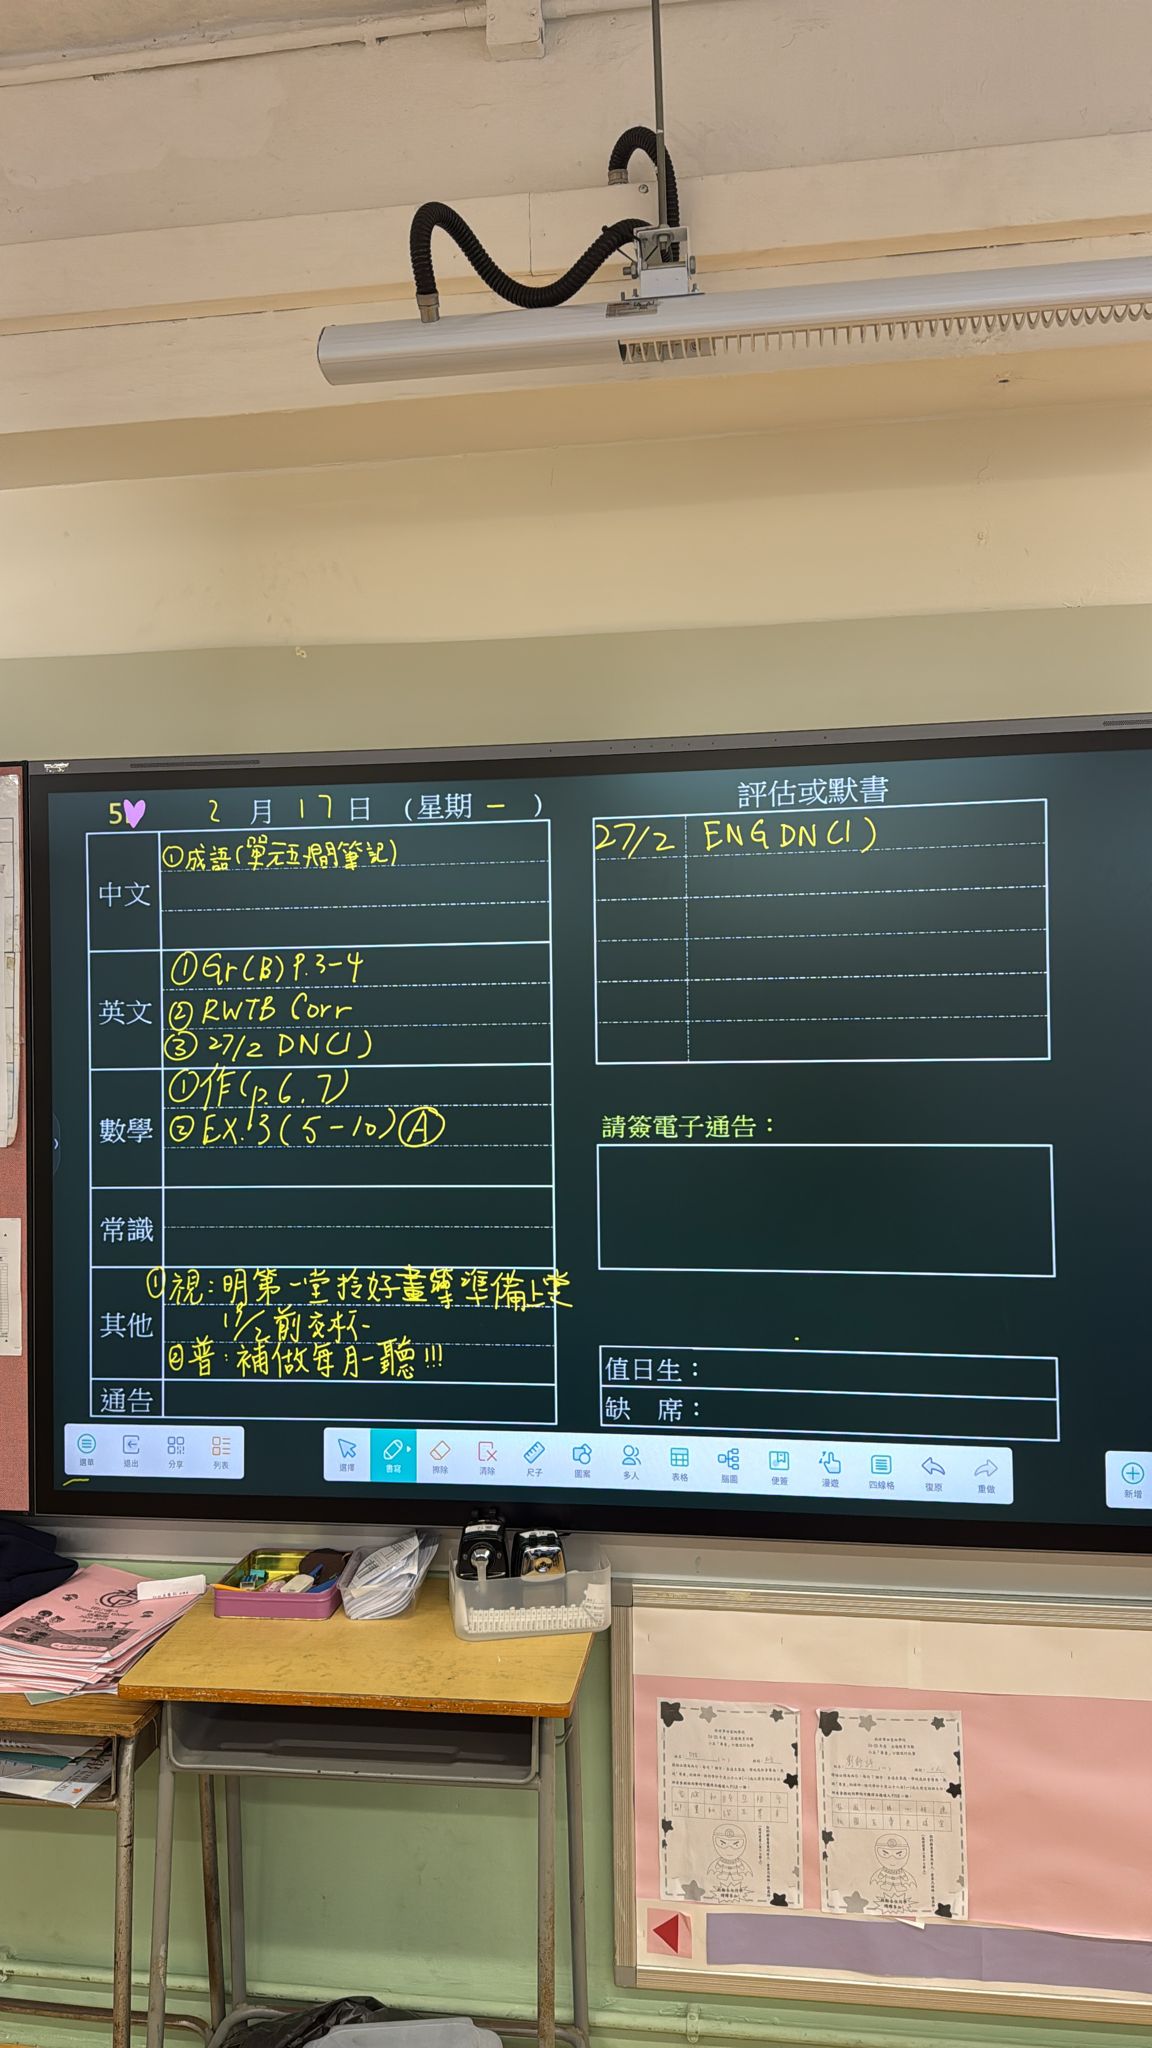 5
2 月 17 日 (星期 一 )
中文
①成語(單元五)溫筆記)
英文
①Gr(B) P.3-4
②RWTB Corr
③ 27/2 DN(1)
數學
①作(p.6,7)
②EX.3(5-10)Ⓐ
常識
其他
①視:明第一堂拎好畫筆準備上堂
19/2前交
②普:補做每月一聽!!!
通告
評估或默書
27/2 ENG DN(1)
請簽電子通告:
值日生:
缺 席:
選單 退出 分享 列表 選擇 書寫 擦除 清除 尺子 圖案 多人 表格 腦圖 便簽 漫遊 四線格 復原 重做 新增